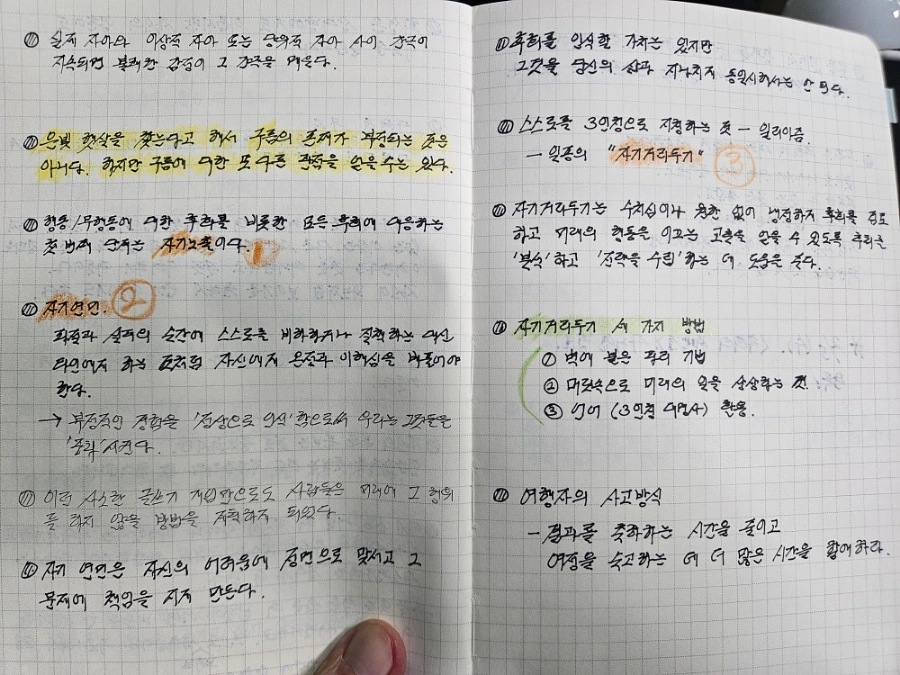 실제 자아와 이상적 자아 또는 당위적 자아 사이 간극이
지속되면 불쾌한 감정이 그 간극을 메운다.
은빛 햇살을 찾는다고 해서 구름의 존재가 부정되는 것은
아니다. 하지만 구름에 대한 또 다른 관점을 얻을 수는 있다.
행동/무행동에 대한 후회를 비롯한 모든 후회에 대응하는
첫 번째 단계는 자기노출이다. 1
자기연민. ②
좌절과 실패의 순간에 스스로를 비하하거나 질책하는 대신
타인에게 하는 것처럼 자신에게 온정과 이해심을 베풀어야
한다.
→ 부정적인 경험을 '정상으로 인식'함으로써 우리는 그것들을
'중화'시킨다.
이런 사소한 글쓰기 개입만으로도 사람들은 미래에 그 행위
를 하지 않을 방법을 계획하게 되었다.
자기 연민은 자신의 어려움에 정면으로 맞서고 그
문제에 책임을 지게 만든다.
후회를 인식할 가치는 있지만
그것을 당신의 삶과 지나치게 동일시해서는 안 된다.
스스로를 3인칭으로 지칭하는 것 - 일리이즘
- 일종의 "자기거리두기" ③
자기거리두기는 수치심이나 원한 없이 냉정하게 후회를 검토
하고 미래의 행동을 이끄는 교훈을 얻을 수 있도록 후회를
'분석'하고 '전략을 수립'하는 데 도움을 준다.
자기거리두기 세 가지 방법
① 벽에 붙은 파리 기법
② 머릿속으로 미래의 일을 상상하는 것.
③ 언어 (3인칭 대명사) 활용.
여행자의 사고방식
- 결과를 축하하는 시간을 줄이고
여정을 숙고하는 데 더 많은 시간을 할애하라.